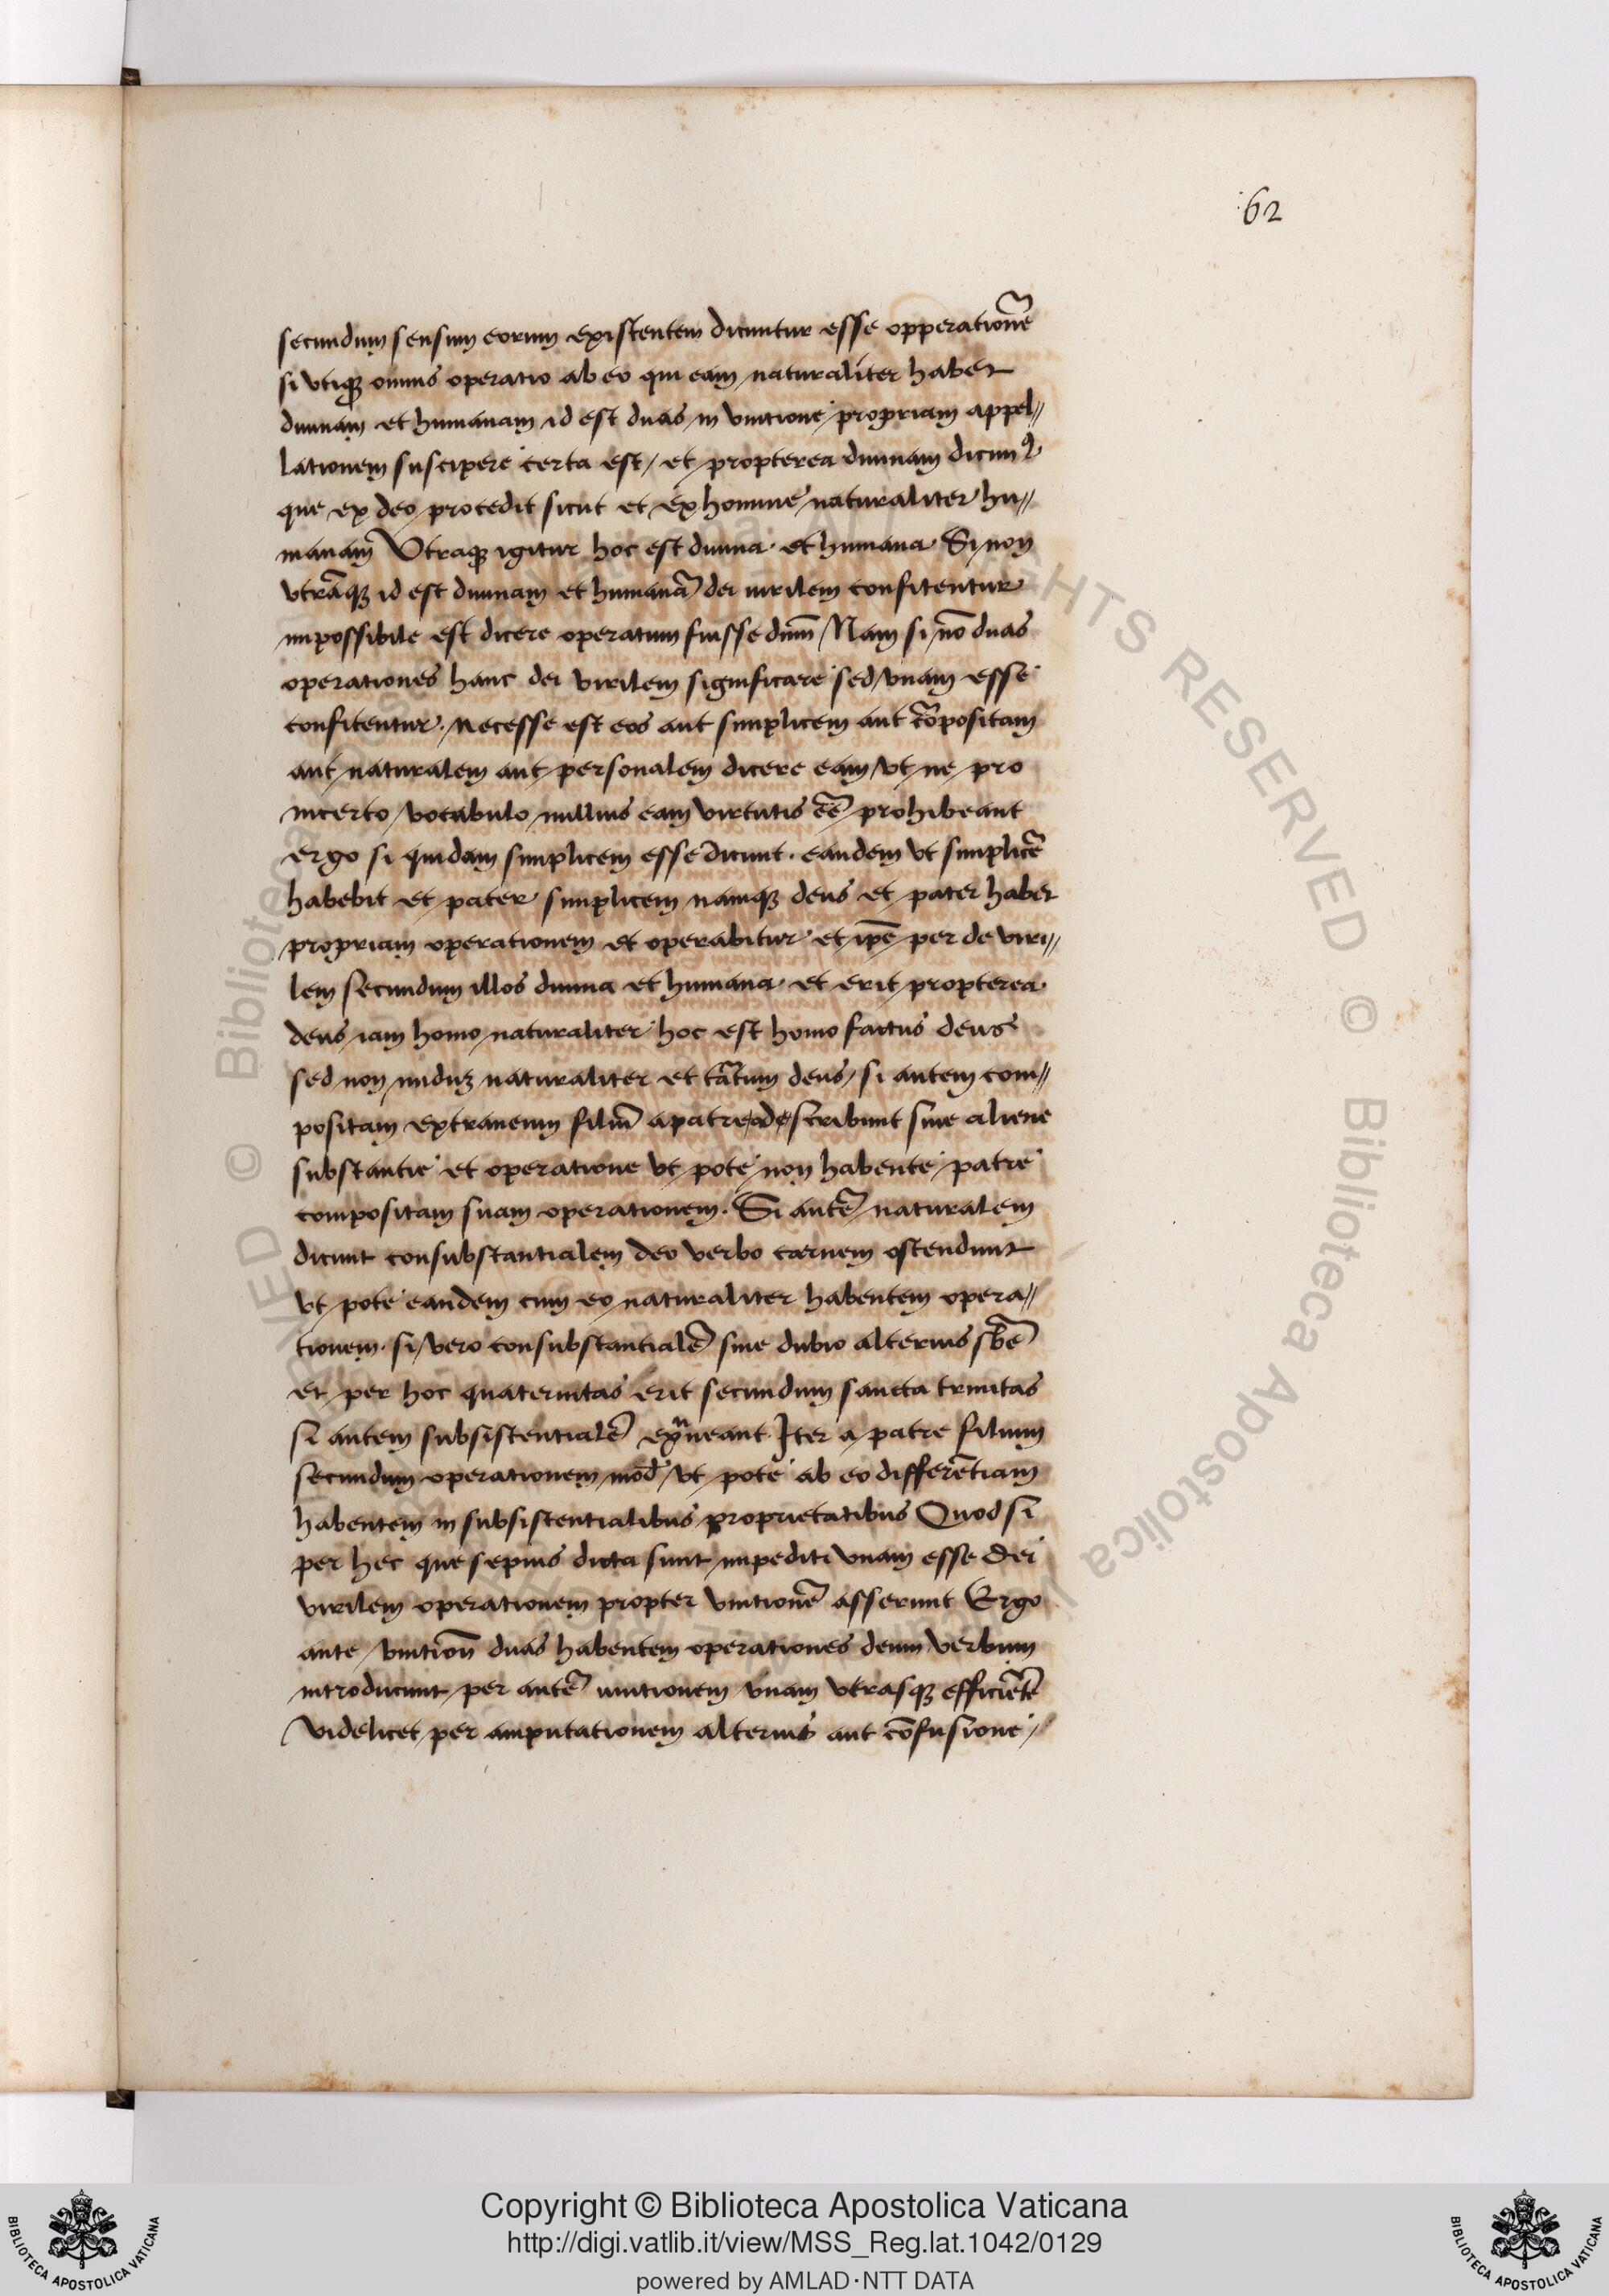 62
secundum sensum eorum existentem dicuntur esse opperationē
si utiqꝫ omnis operatio ab eo qui eam naturaliter habet
diuinam et humanam id est duas in unitione propriam appel//
lationem suscipere certa est / et propterea diuinam dicimꝰ
que ex deo procedit sicut et ex homine naturaliter hu//
manam Vtraqꝫ igitur hoc est diuina · et humana · Si non
vtrāqꝫ id est diuinam et humanā dei uirilem confitentur
impossibile est dicere operatum fuisse dnm̄ Nam si nō duas
operationes hanc dei virilem significare sed vnam esse
confitentur · necesse est eos aut simplicem aut cōpositam
aut naturalem aut personalem dicere eam vt ne pro
incerto vocabulo nullius eam virtutis eē prohibeant
ergo si quidam simplicem esse dicunt · eandem vt simplicē
habebit et pater simplicem namqꝫ deus et pater habet
propriam operationem et operabitur et ipē per de viri//
lem secundum illos diuina et humana · et erit propterea
deus iam homo naturaliter hoc est homo factus deus
sed non nuduꝫ naturaliter et tātum deus / si autem com//
positam extraneum filiū a patre describunt siue aliene
substantie et operatione vt pote non habente patre
compositam suam operationem · Si autē naturalem
dicunt consubstantialem deo verbo carnem ostendunt
vt pote eandem cum eo naturaliter habentem opera//
tionem · si vero consubstantialē siue dubio alterius sbē
et per hoc quaternitas erit secundum sancta trinitas
si autem subsistentialē Iter a patre filium
secundum operationem mod̄ vt pote ab eo differētiam
habentem in subsistentialibus proprietatibus Quod si
per hec que sepius dicta sunt impediti vnam esse dei
virilem operationem propter vnitionē asserunt Ergo
ante vnitioñ duas habentem operationes deum verbum
introducunt per autē unitionem vnam vtrasqꝫ efficiētē
videlicet per amputationem alterius aut cōfusione /
Copyright © Biblioteca Apostolica Vaticana
http://digi.vatlib.it/view/MSS_Reg.lat.1042/0129
powered by AMLAD·NTT DATA